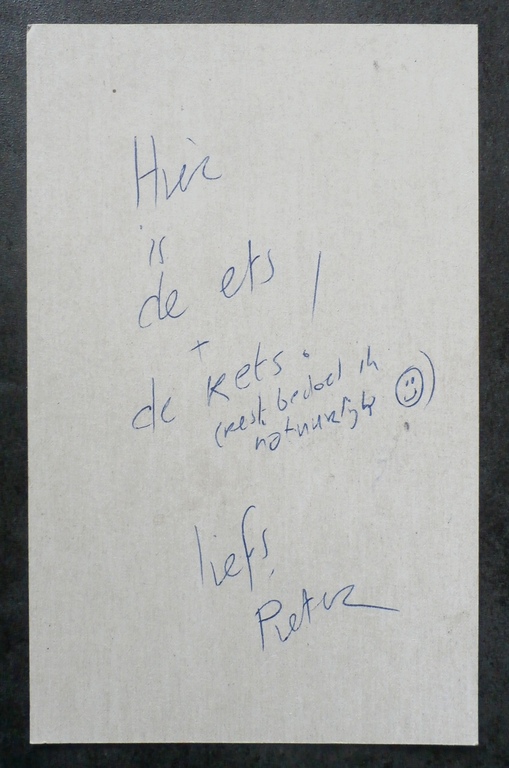 Hier
is
de ets!
+
de rets.
(rest, bedoel ik
natuurlijk ☺)
liefs,
Pieter